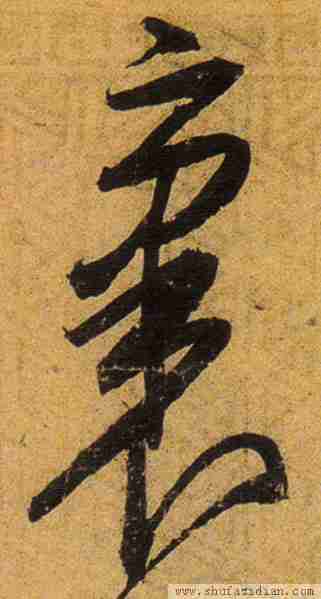 裏
www.shufazidian.com